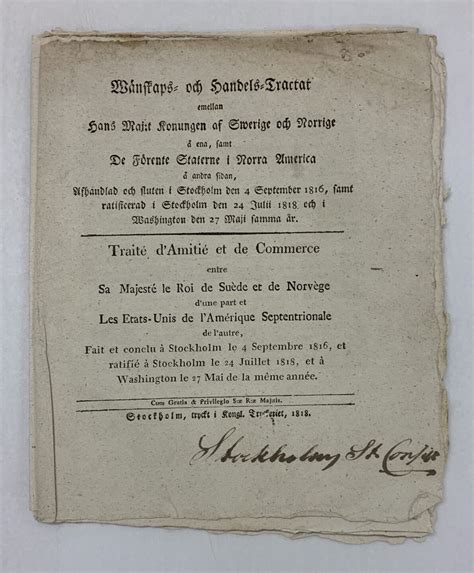 Wänskaps- och Handels-Tractat
emellan
Hans Maj:t Konungen af Swerige och Norrige
å ena, samt
De Förente Staterne i Norra America
å andra sidan,
Afhandlad och sluten i Stockholm den 4 September 1816, samt
ratificerad i Stockholm den 24 Julii 1818 och i
Washington den 27 Maji samma år.
Traité d'Amitié et de Commerce
entre
Sa Majesté le Roi de Suède et de Norvège
d'une part et
Les Etats-Unis de l'Amérique Septentrionale
de l'autre,
Fait et conclu à Stockholm le 4 Septembre 1816, et
ratifié à Stockholm le 24 Juillet 1818, et à
Washington le 27 Mai de la même année.
Cum Gratia & Privilegio Sæ Ræ Majtis.
Stockholm, tryckt i Kongl. Tryckeriet, 1818.
Stockholms St